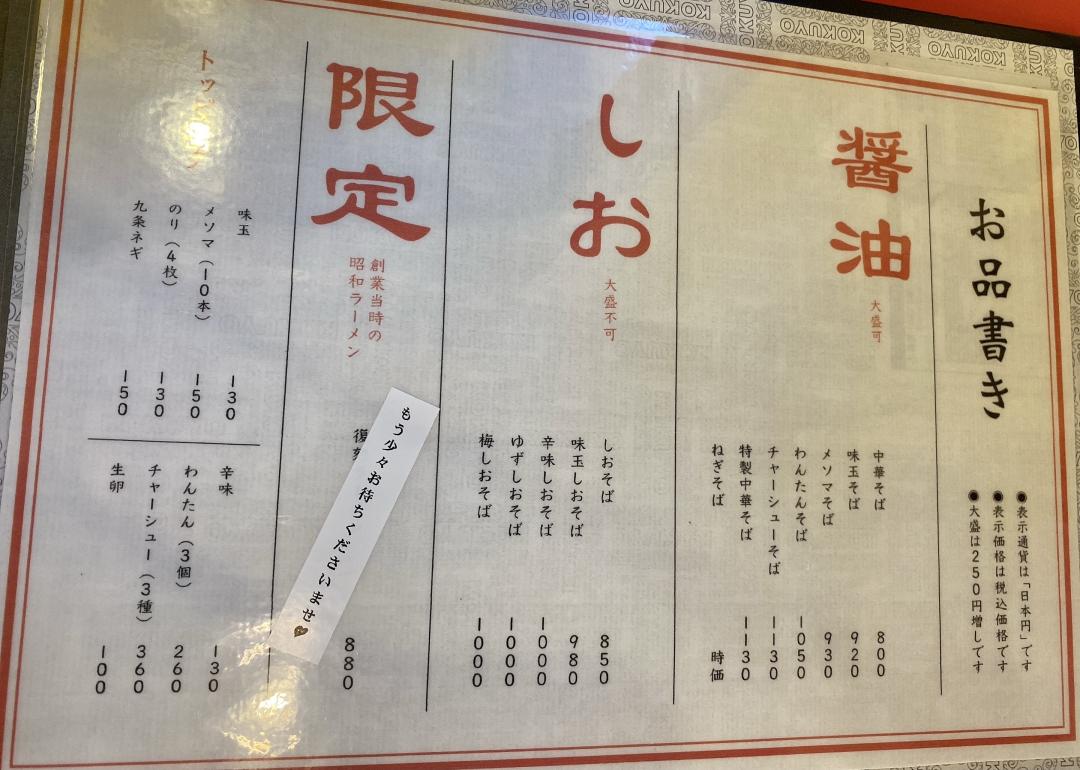 お品書き
●表示通貨は「日本円」です
●表示価格は税込価格です
●大盛は250円増しです
醤油
大盛可
中華そば 800
味玉そば 920
メソマそば 930
わんたんそば 1050
チャーシューそば 1130
特製中華そば 1130
ねぎそば 時価
しお
大盛不可
しおそば 850
味玉しおそば 980
辛味しおそば 1000
ゆずしおそば 1000
梅しおそば 1000
限定
創業当時の
昭和ラーメン
復刻
880
もう少々お待ちくださいませ
味玉 130
メソマ(10本) 150
のり(4枚) 130
九条ネギ 150
辛味 130
わんたん(3個) 260
チャーシュー(3種) 360
生卵 100
KOKUYO